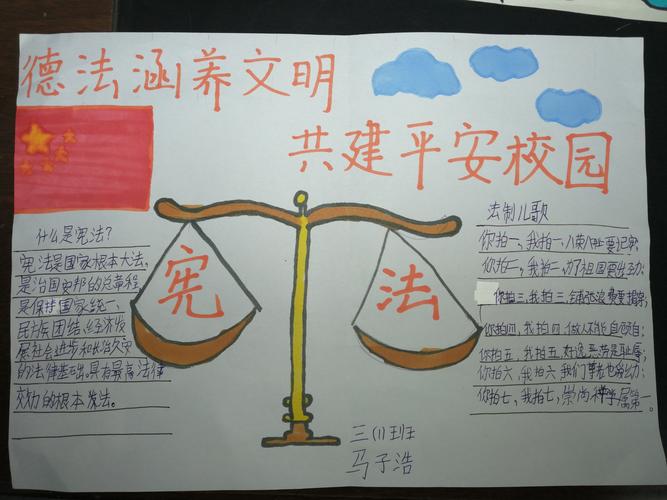 德法涵养文明
共建平安校园
什么是宪法?
宪法是国家根本大法,
是治国安邦的总章程,
是保持国家统一、
民族团结、经济发
展、社会进步和长治久安
的法律基础。具有最高法律
效力的根本大法。
宪
法
法制儿歌
你拍一,我拍一,八荣八耻要记牢;
你拍二,我拍二,为了祖国
你拍三,我拍三,
你拍四,我拍四,做人
你拍五,我拍五,好逸恶劳是耻辱;
你拍六,我拍六,我们
你拍七,我拍七,崇尚科学属第一。
三(1)班
马子浩